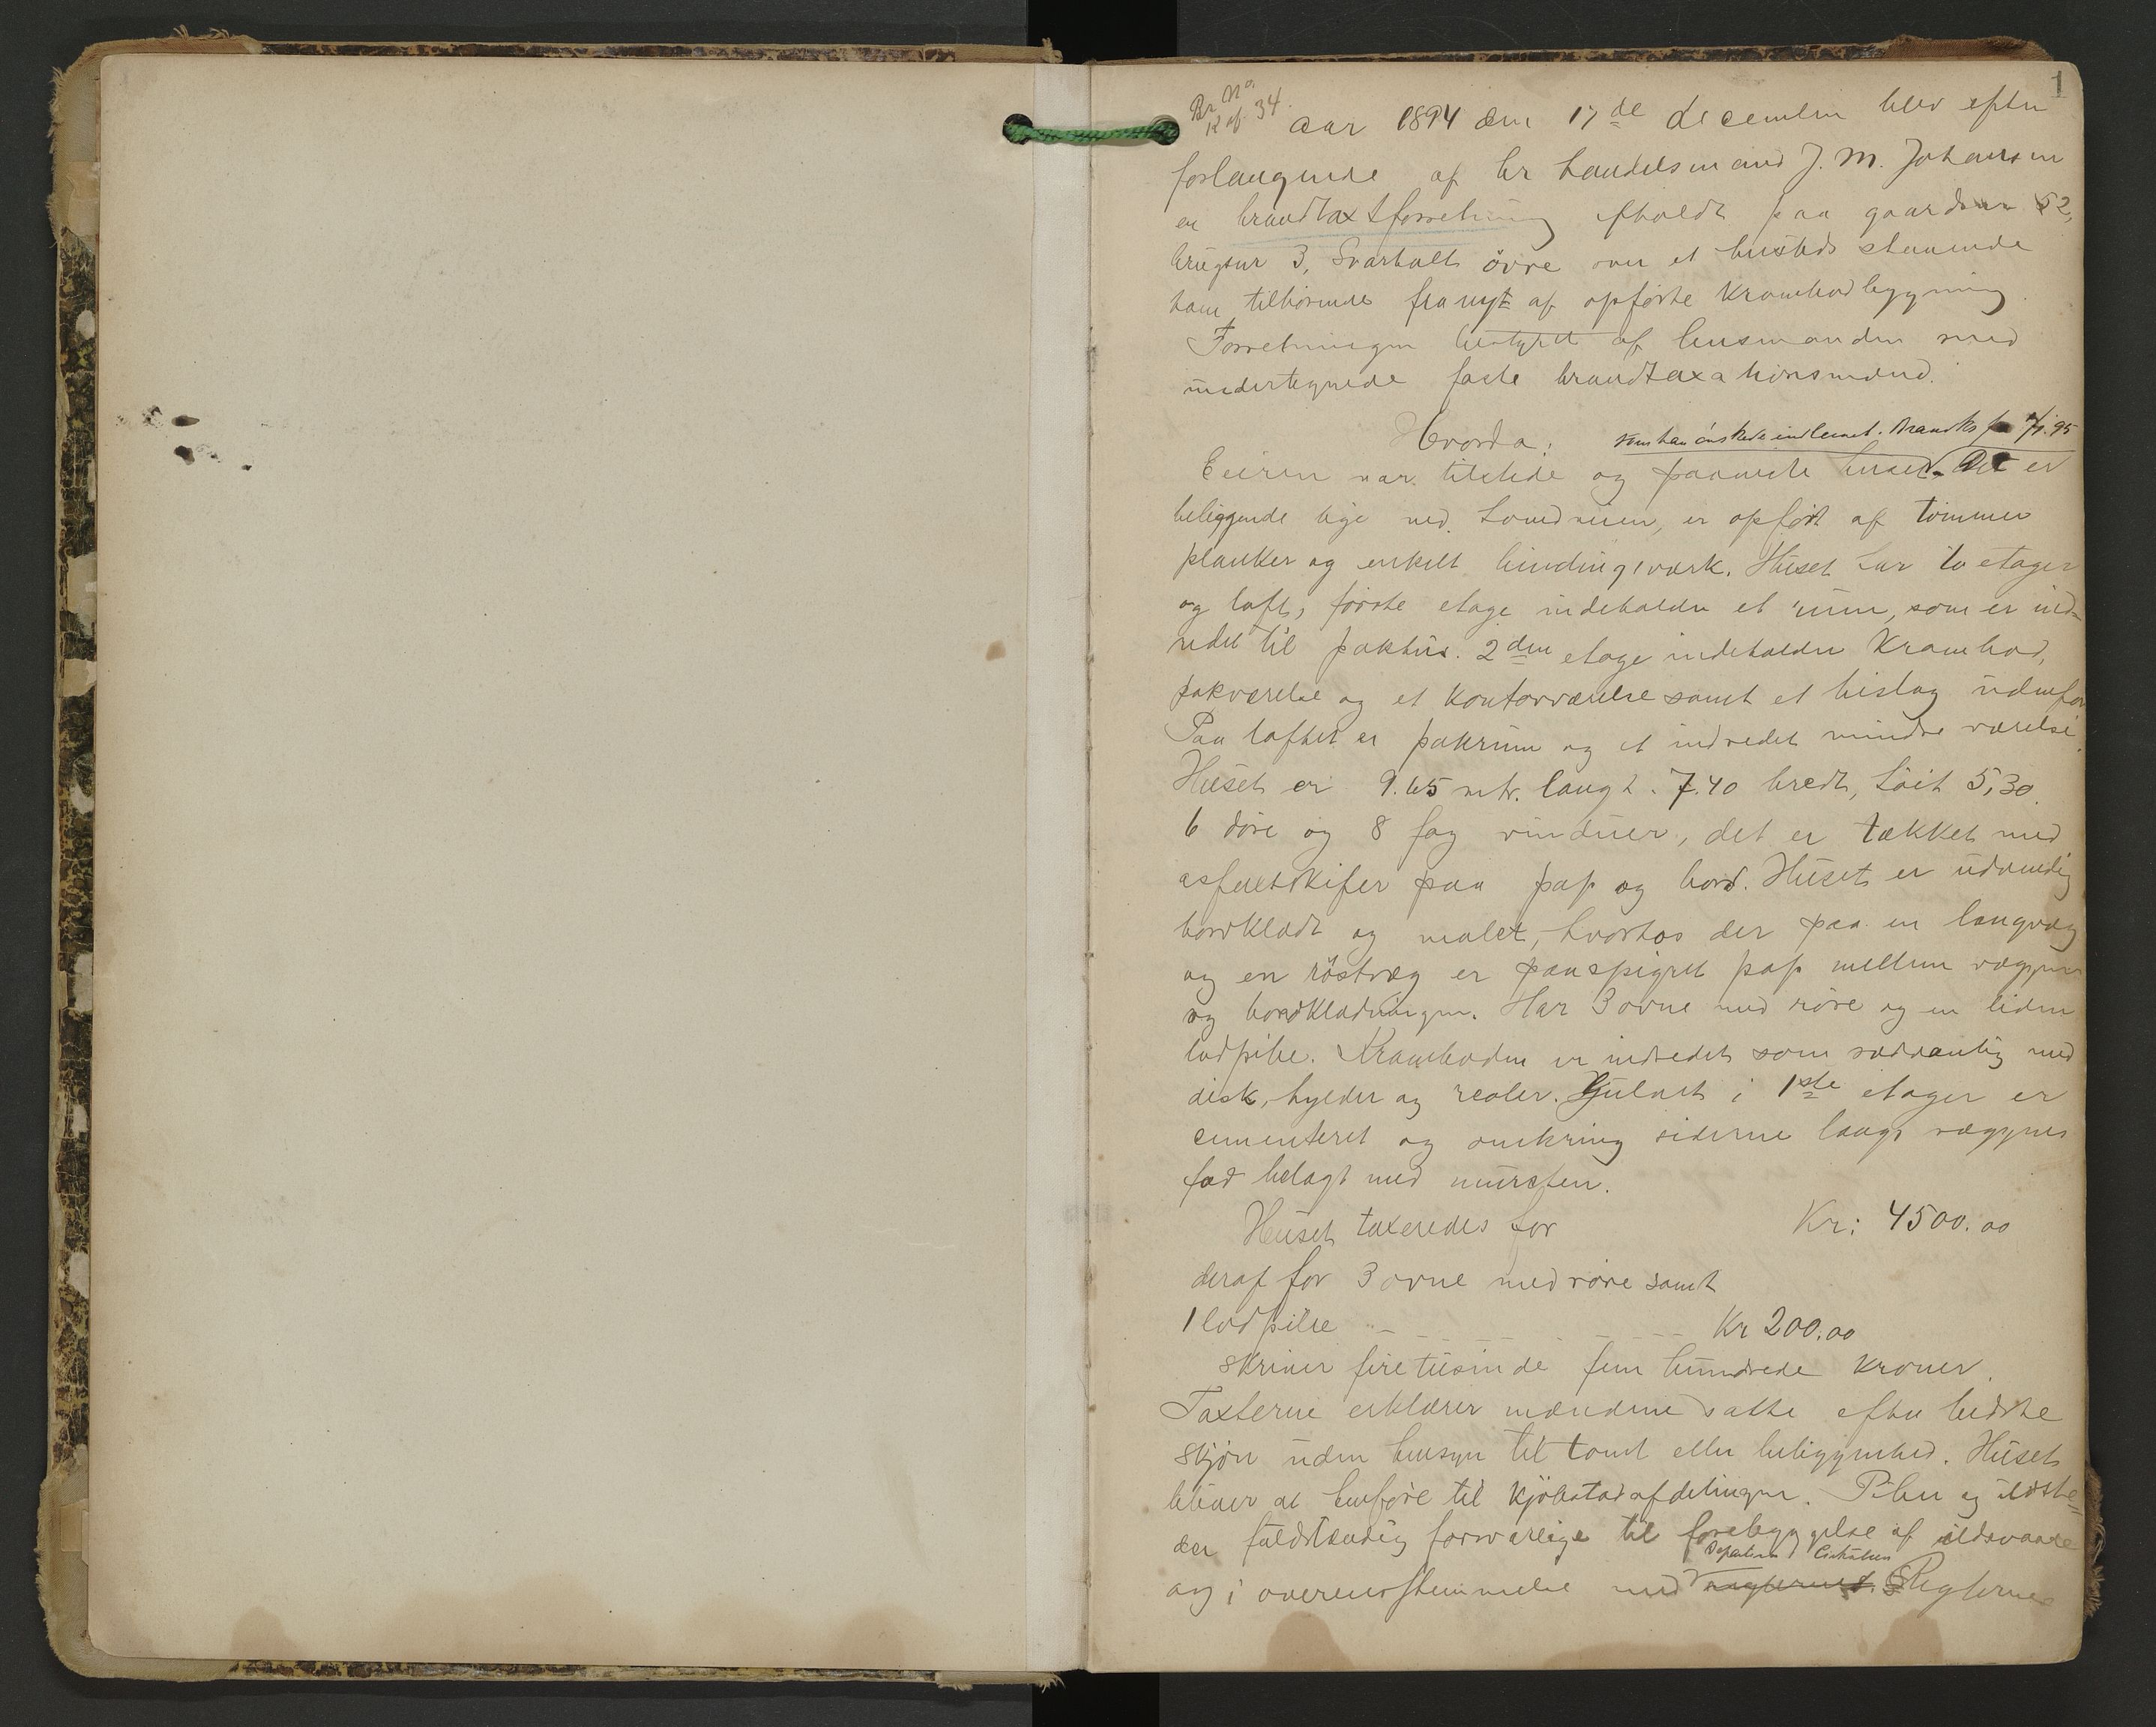 1
Br. No.
K af. 34.
Aar 1894 den 17de december blev efter
forlangende af hr handelsmand J. M. Johansen
en brandtaxtforretning afholdt paa gaardsnr 52,
brugsnr 3, Svartholt övre over et husteds staaende
ham tilhørende fra nyt af opførte Krambodbygning
Forretningen bestyret af lensmanden med
undertegnede faste brandtaxationsmænd.
Hvorda:
som han önskede indlemmet. Brandks fra 1/1 95
Eieren var tilstede og paaviste huset. Det er
beliggende lige ved hovedveien, er opført af tömmer
planker og enkelt bindingsværk. Huset har to etager
og loft, første etage indeholder et rum, som er ind-
redet til pakhus. 2den etage indeholder Krambod,
pakværelse og et kontorværelse samt et bislag udenfor
Paa loftet er pakrum og et indredet mindre værelse.
Huset er 9.65 mtr. langt. 7.40 bredt, höit 5,30.
6 döre og 8 fag vinduer, det er tækket med
asfaltskifer paa pap og bord. Huset er udvendig
bordklædt og malet, hvorhos der paa en langvæg
og en röstvæg er paaspigret pap mellem væggen
og bordklædningen. Har 3 ovne med röre og en liden
lodpibe. Kramboden er indredet som sædvanlig med
disk, hylder og reoler. Gulvet i 1ste etager er
cementeret og omkring siderne langs væggenes
fod belagt med mursten.
Huset taxeredes for Kr: 4500.00
deraf for 3 ovne med röre samt
1 lodpibe - - - - - - Kr 200.00
skriver firetusinde fem hundrede kroner.
Taxterne erklærer mændene satte efter bedste
skjön uden hensyn til tomt eller beliggenhed. Huset
bliver at henføre til kjöbstadafdelingen. Piber og ildste-
der fuldstændig forsvarlige til forebyggelse af ildsvaade
Departem Cirkulære
og i overensstemmelse med reglernes. Reglerne